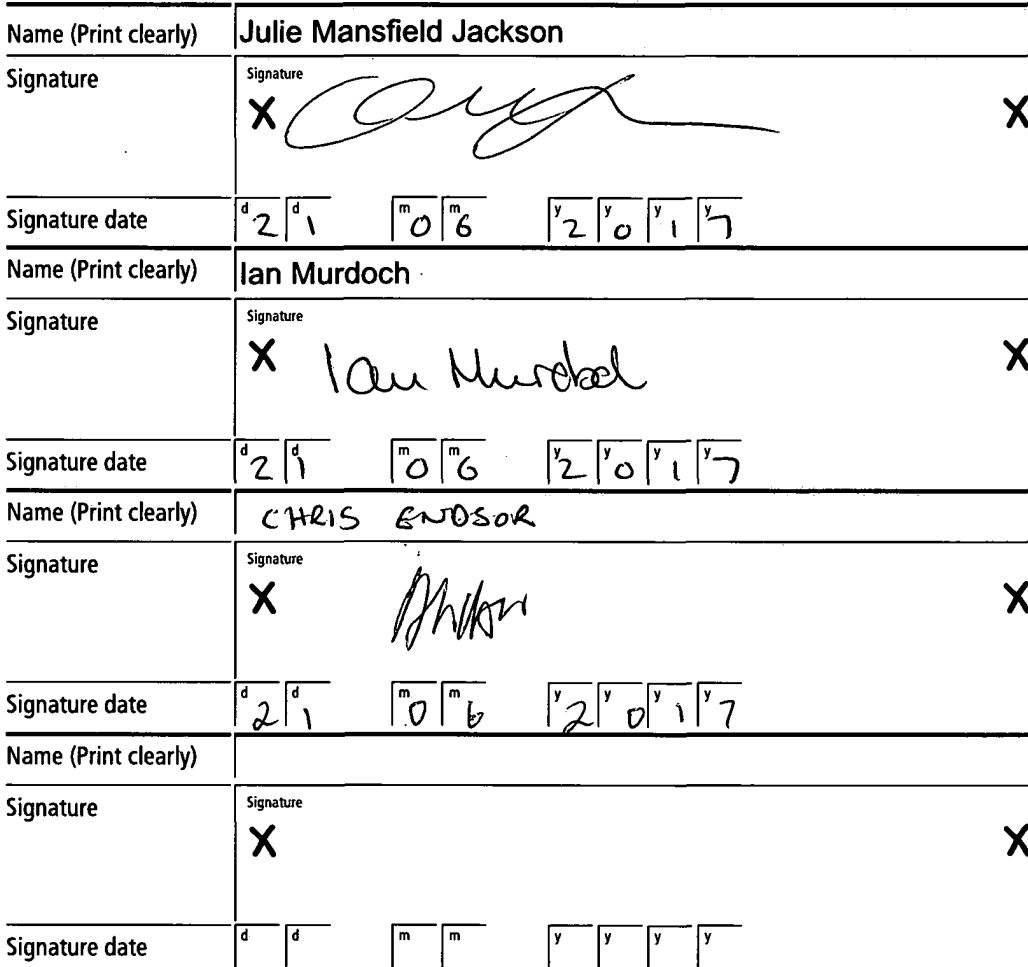 Name (Print clearly) Julie Mansfield Jackson
Signature Signature
X X
Signature date d2 d1 m0 m6 y2 y0 y1 y7
Name (Print clearly) Ian Murdoch
Signature Signature
X Ian Murdoch X
Signature date d2 d1 m0 m6 y2 y0 y1 y7
Name (Print clearly) CHRIS ENDSOR
Signature Signature
X X
Signature date d2 d1 m0 m6 y2 y0 y1 y7
Name (Print clearly)
Signature Signature
X X
Signature date d d m m y y y y